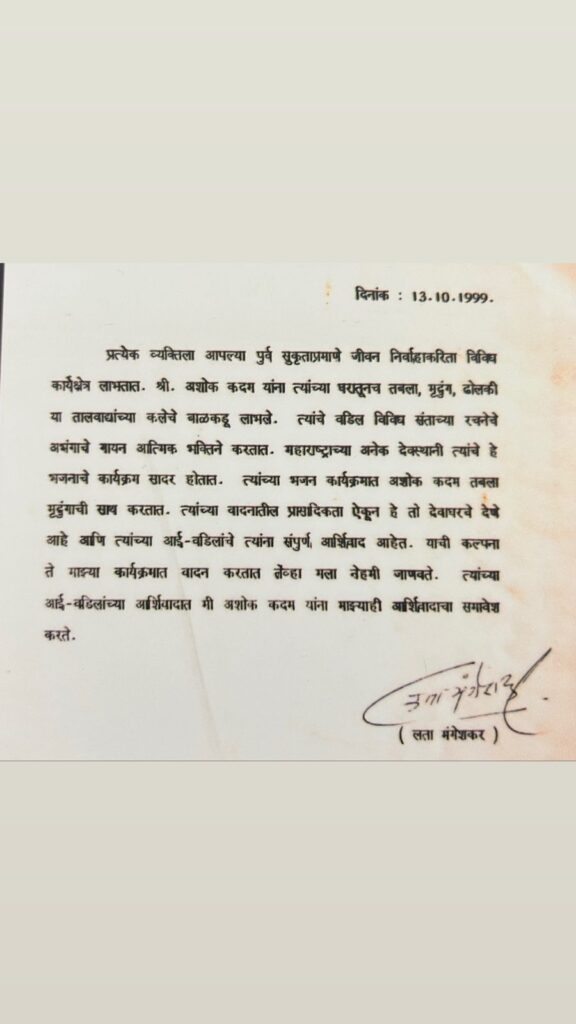 दिनांक : 13.10.1999.
प्रत्येक व्यक्तिला आपल्या पुर्व सुकृताप्रमाणे जीवन निर्वाहाकरिता विविध
कार्यक्षेत्र लाभतात. श्री. अशोक कदम यांना त्यांच्या घरातूनच तबला, मृदुंग, ढोलकी
या तालवाद्यांच्या कलेचे बाळकडू लाभले. त्यांचे वडिल विविध संताच्या रचनेचे
अभंगाचे गायन आत्मिक भक्तिने करतात. महाराष्ट्राच्या अनेक देवस्थानी त्यांचे हे
भजनाचे कार्यक्रम सादर होतात. त्यांच्या भजन कार्यक्रमात अशोक कदम तबला
मृदुंगाची साथ करतात. त्यांच्या वादनातील प्रासादिकता ऐकून हे तो देवाघरचे देणे
आहे आणि त्यांच्या आई-वडिलांचे त्यांना संपुर्ण आर्शिवाद आहेत. याची कल्पना
ते माझ्या कार्यक्रमात वादन करतात तेंव्हा मला नेहमी जाणवते. त्यांच्या
आई-वडिलांच्या आर्शिवादात मी अशोक कदम यांना माझ्याही आर्शिवादाचा समावेश
करते.
लता मंगेशकर
( लता मंगेशकर )